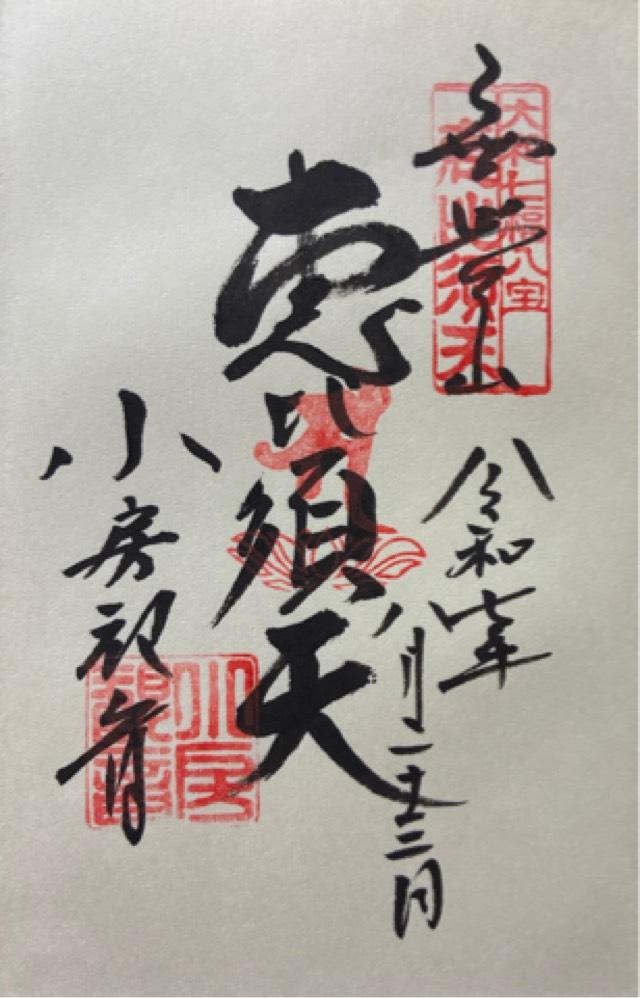 無量山
大和七福八宝
恵比須天
令和七年
八月二十三日
恵比須天
小房観音
小房
観音